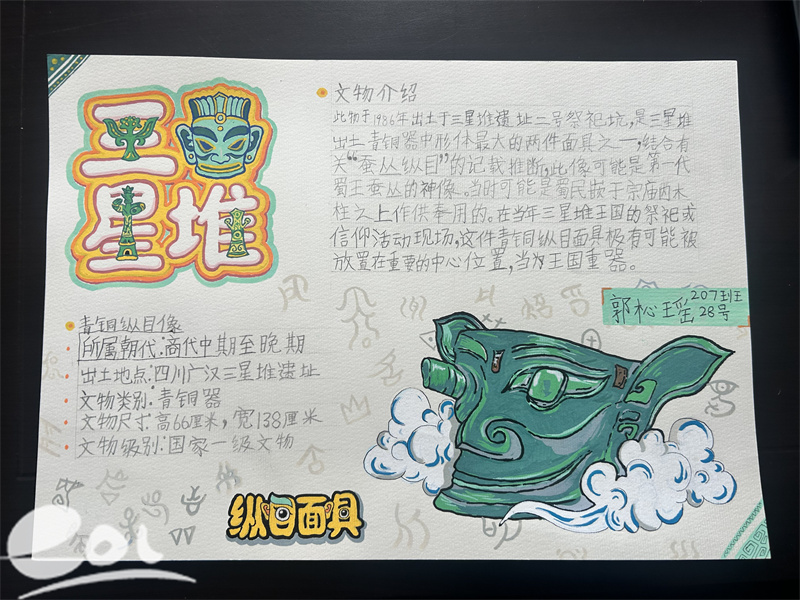 三星堆
文物介绍
此物于1986年出土于三星堆遗址二号祭祀坑,是三星堆
出土青铜器中形体最大的两件面具之一,结合有
关“蚕丛纵目”的记载推断,此像可能是第一代
蜀王蚕丛的神像。当时可能是蜀民嵌于宗庙内木
柱之上作供奉用的。在当年三星堆王国的祭祀或
信仰活动现场,这件青铜纵目面具极有可能被
放置在重要的中心位置,当为王国重器。
郭松瑶 207班
28号
青铜纵目像
所属朝代:商代中期至晚期
出土地点:四川广汉三星堆遗址
文物类别:青铜器
文物尺寸:高66厘米,宽138厘米
文物级别:国家一级文物
纵目面具
eol